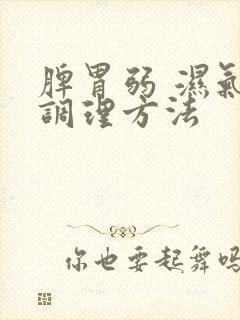 脾胃弱 濕氣
調理方法
你也要起舞嗎